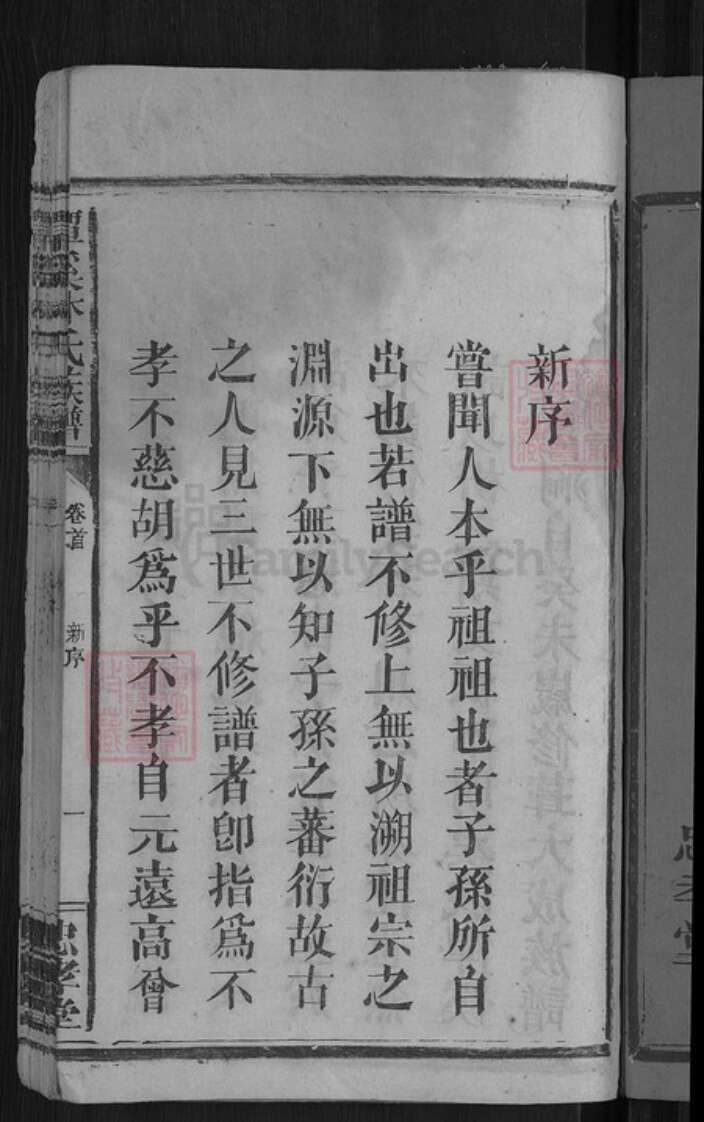 新序
嘗聞人本乎祖祖也者子孫所自
出也若譜不修上無以溯祖宗之
淵源下無以知子孫之蕃衍故古
之人見三世不修譜者卽指爲不
孝不慈胡爲乎不孝自元遠高曾
林氏族譜
卷首
新序
一
忠孝堂
忠孝堂
FamilySearch